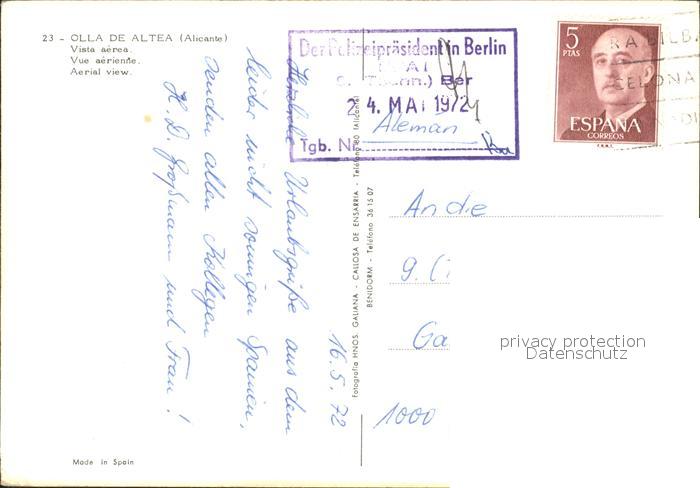 23 - OLLA DE ALTEA (Alicante)
Vista aérea.
Vue aérienne.
Aerial view.
16.5.72
Herzliche Urlaubsgrüße aus dem
leider nicht sonnigen Spanien,
senden allen Kollegen
H. D. Großmann und Frau!
Made in Spain
Fotografía HNOS. GALIANA - CALLOSA DE ENSARRIA - Teléfono 80 (Alicante)
BENIDORM - Teléfono 36 15 07
Der Polizeipräsident in Berlin
24. MAI 1972
Tgb. Nr.
Alemán
5
PTAS
ESPAÑA
CORREOS
An die
9. (
Ga
1000
privacy protection
Datenschutz